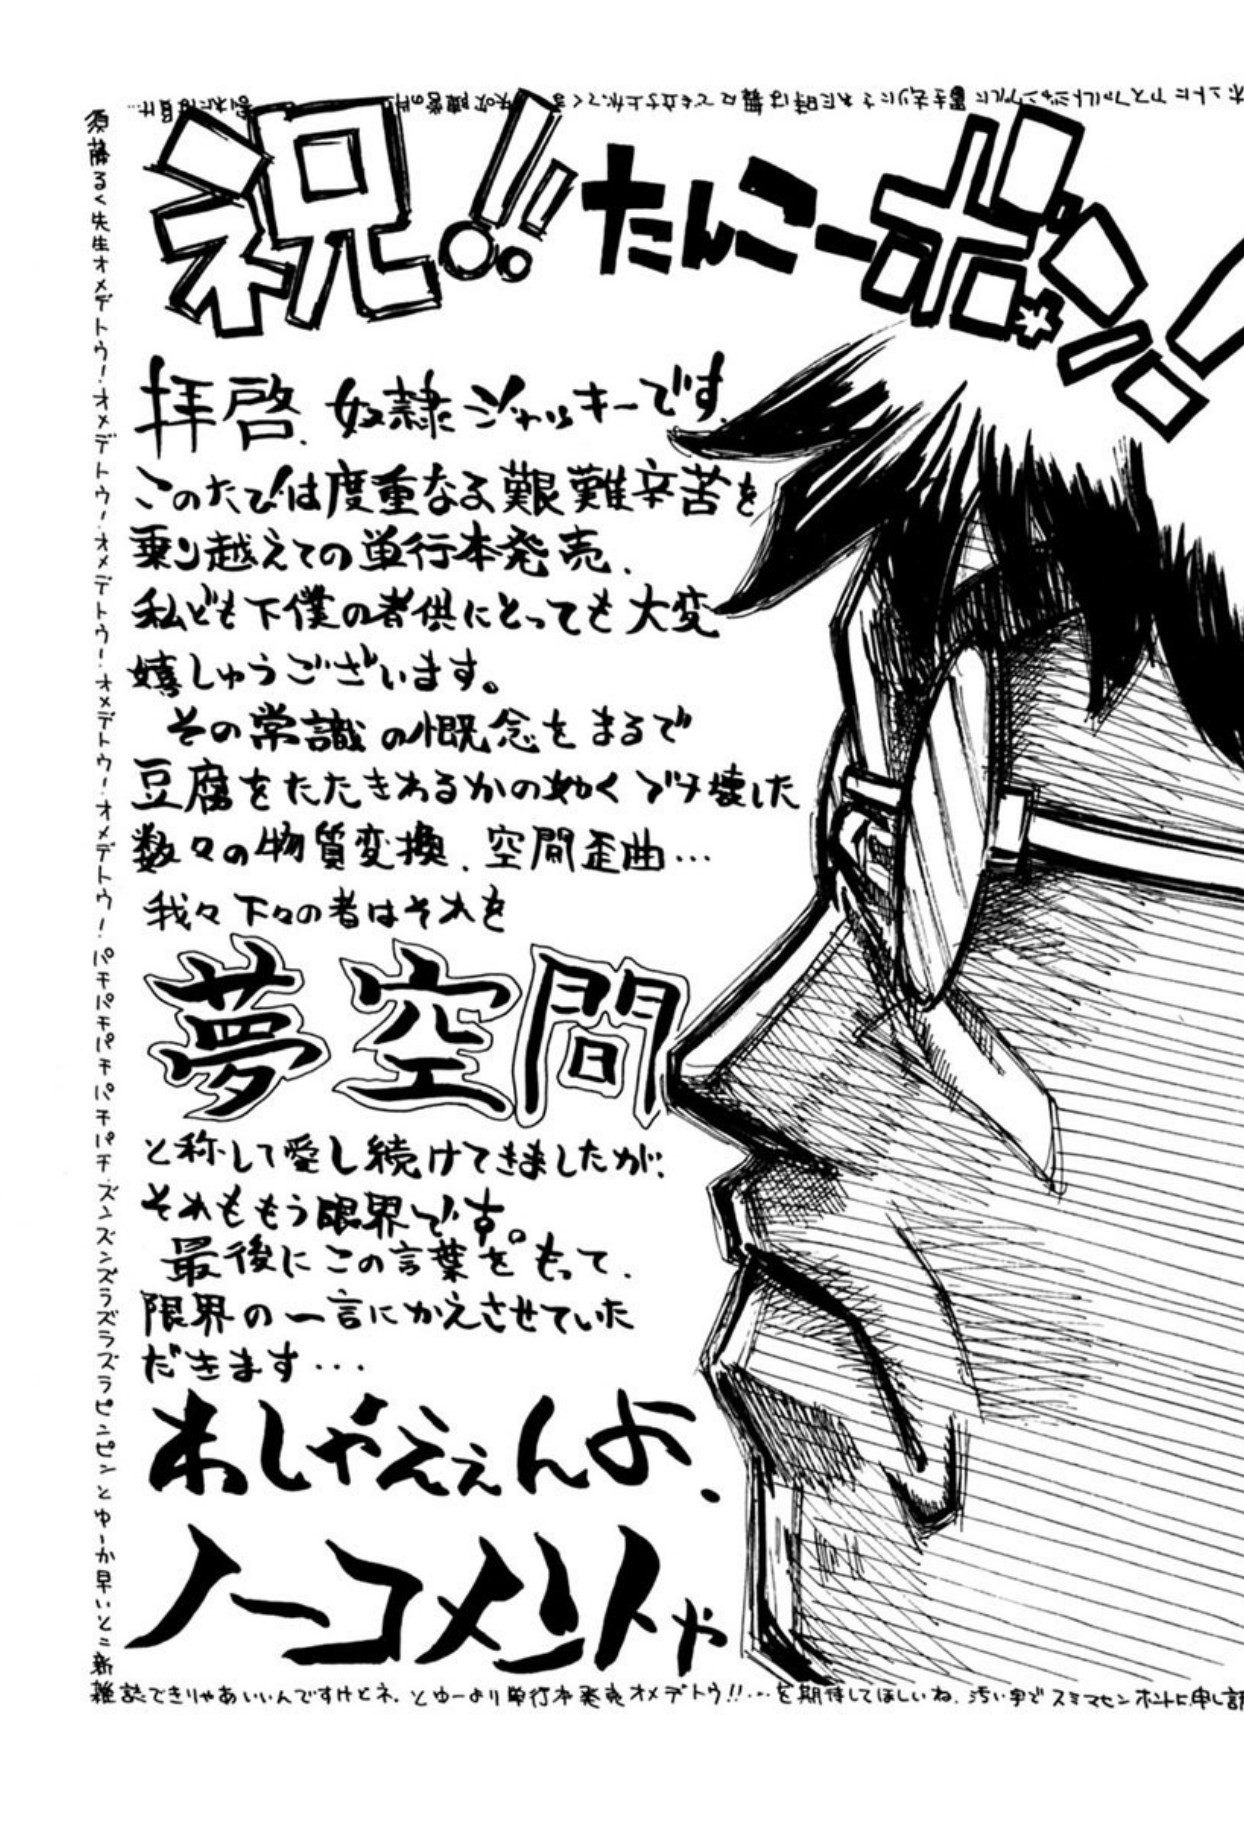 祝!! たんこーボン!
拝啓、奴隷ジャッキーです。
このたびは度重なる艱難辛苦を
乗り越えての単行本発売、
私ども下僕の者供にとっても大変
嬉しゅうございます。
その常識の慨念をまるで
豆腐をたたきわるかの如くブチ壊した
数々の物質変換、空間歪曲…
我々下々の者はそれを
夢空間
と称して愛し続けてきましたが、
それももう限界です。
最後にこの言葉をもって、
限界の一言にかえさせていた
だきます…
わしゃええんよ、
ノーコメントや
須藤るく先生オメデトウ!オメデトウ!オメデトウ!オメデトウ!オメデトウ!パチパチパチパチパチ ズンズンズラズラズラピンピンとゆーか早いとこ新
雑誌できりゃあいいんですけどネ、とゆーより単行本発売オメデトウ!!…を期待してほしいね、汚い字でスミマセンホントに申し訳